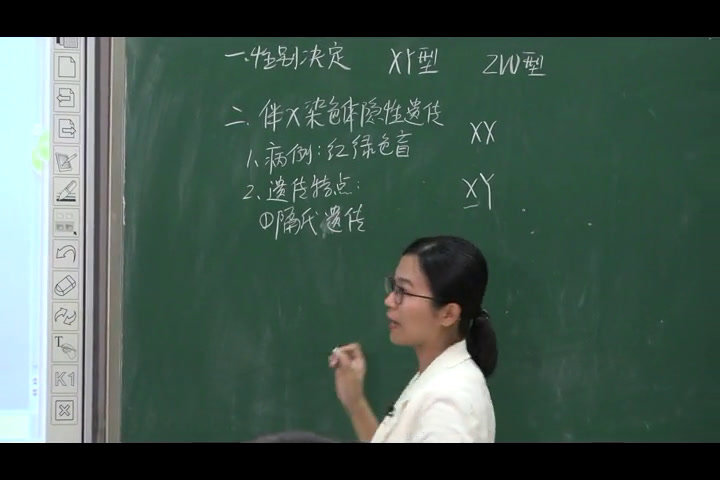 一.性别决定 XY型 ZW型
二.伴X染色体隐性遗传
XX
1、病例:红绿色盲
2、遗传特点:
XY
①隔代遗传
T
K1